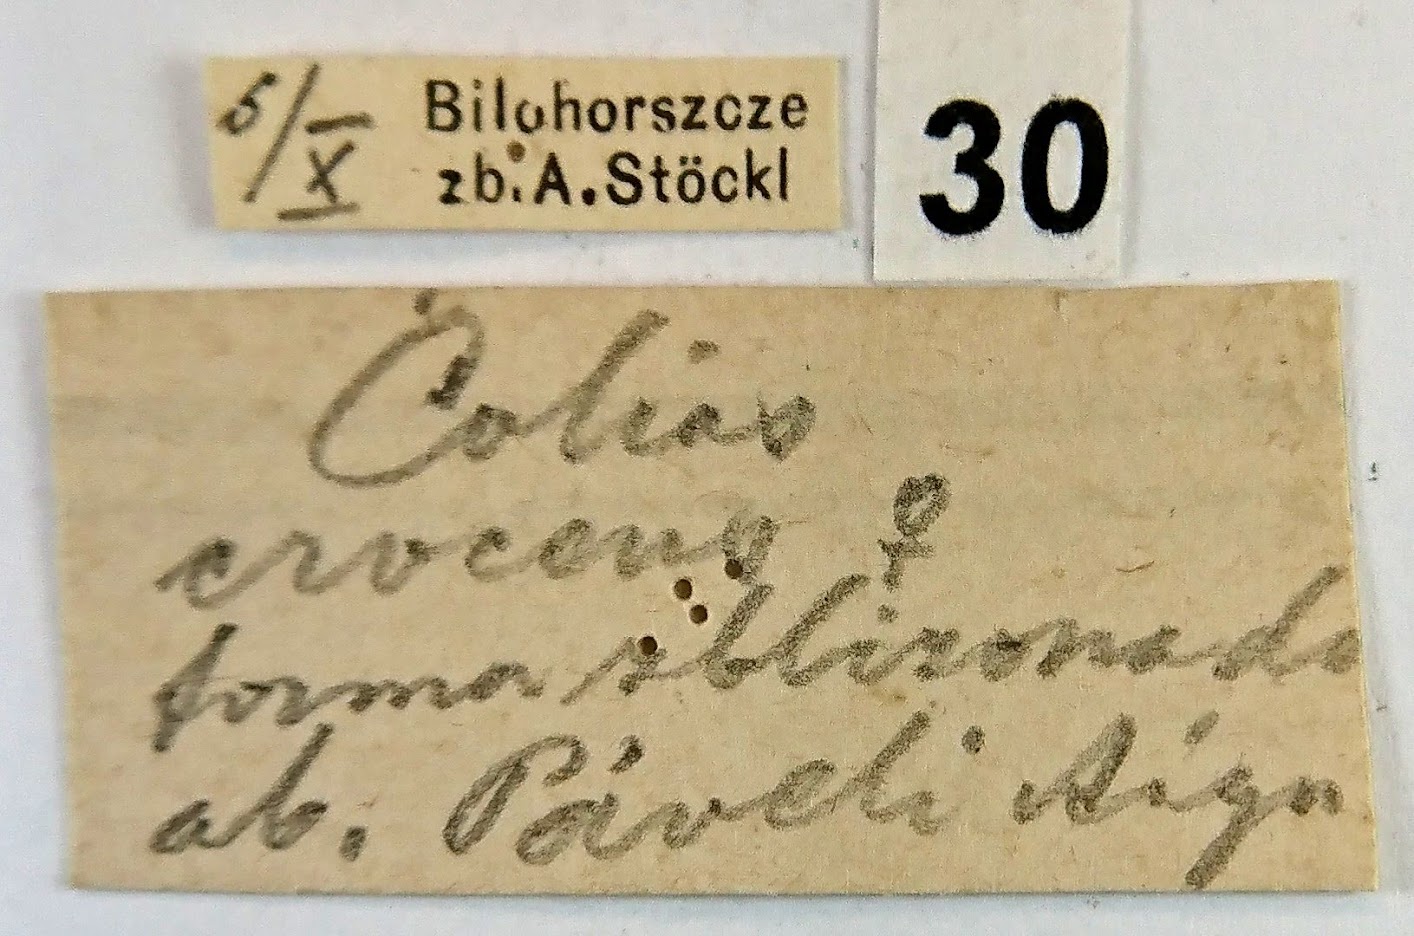 5/X Bilohorszcze
zb. A. Stöckl
30
Colias
croceus ♀
forma
ab. Páveli Aign